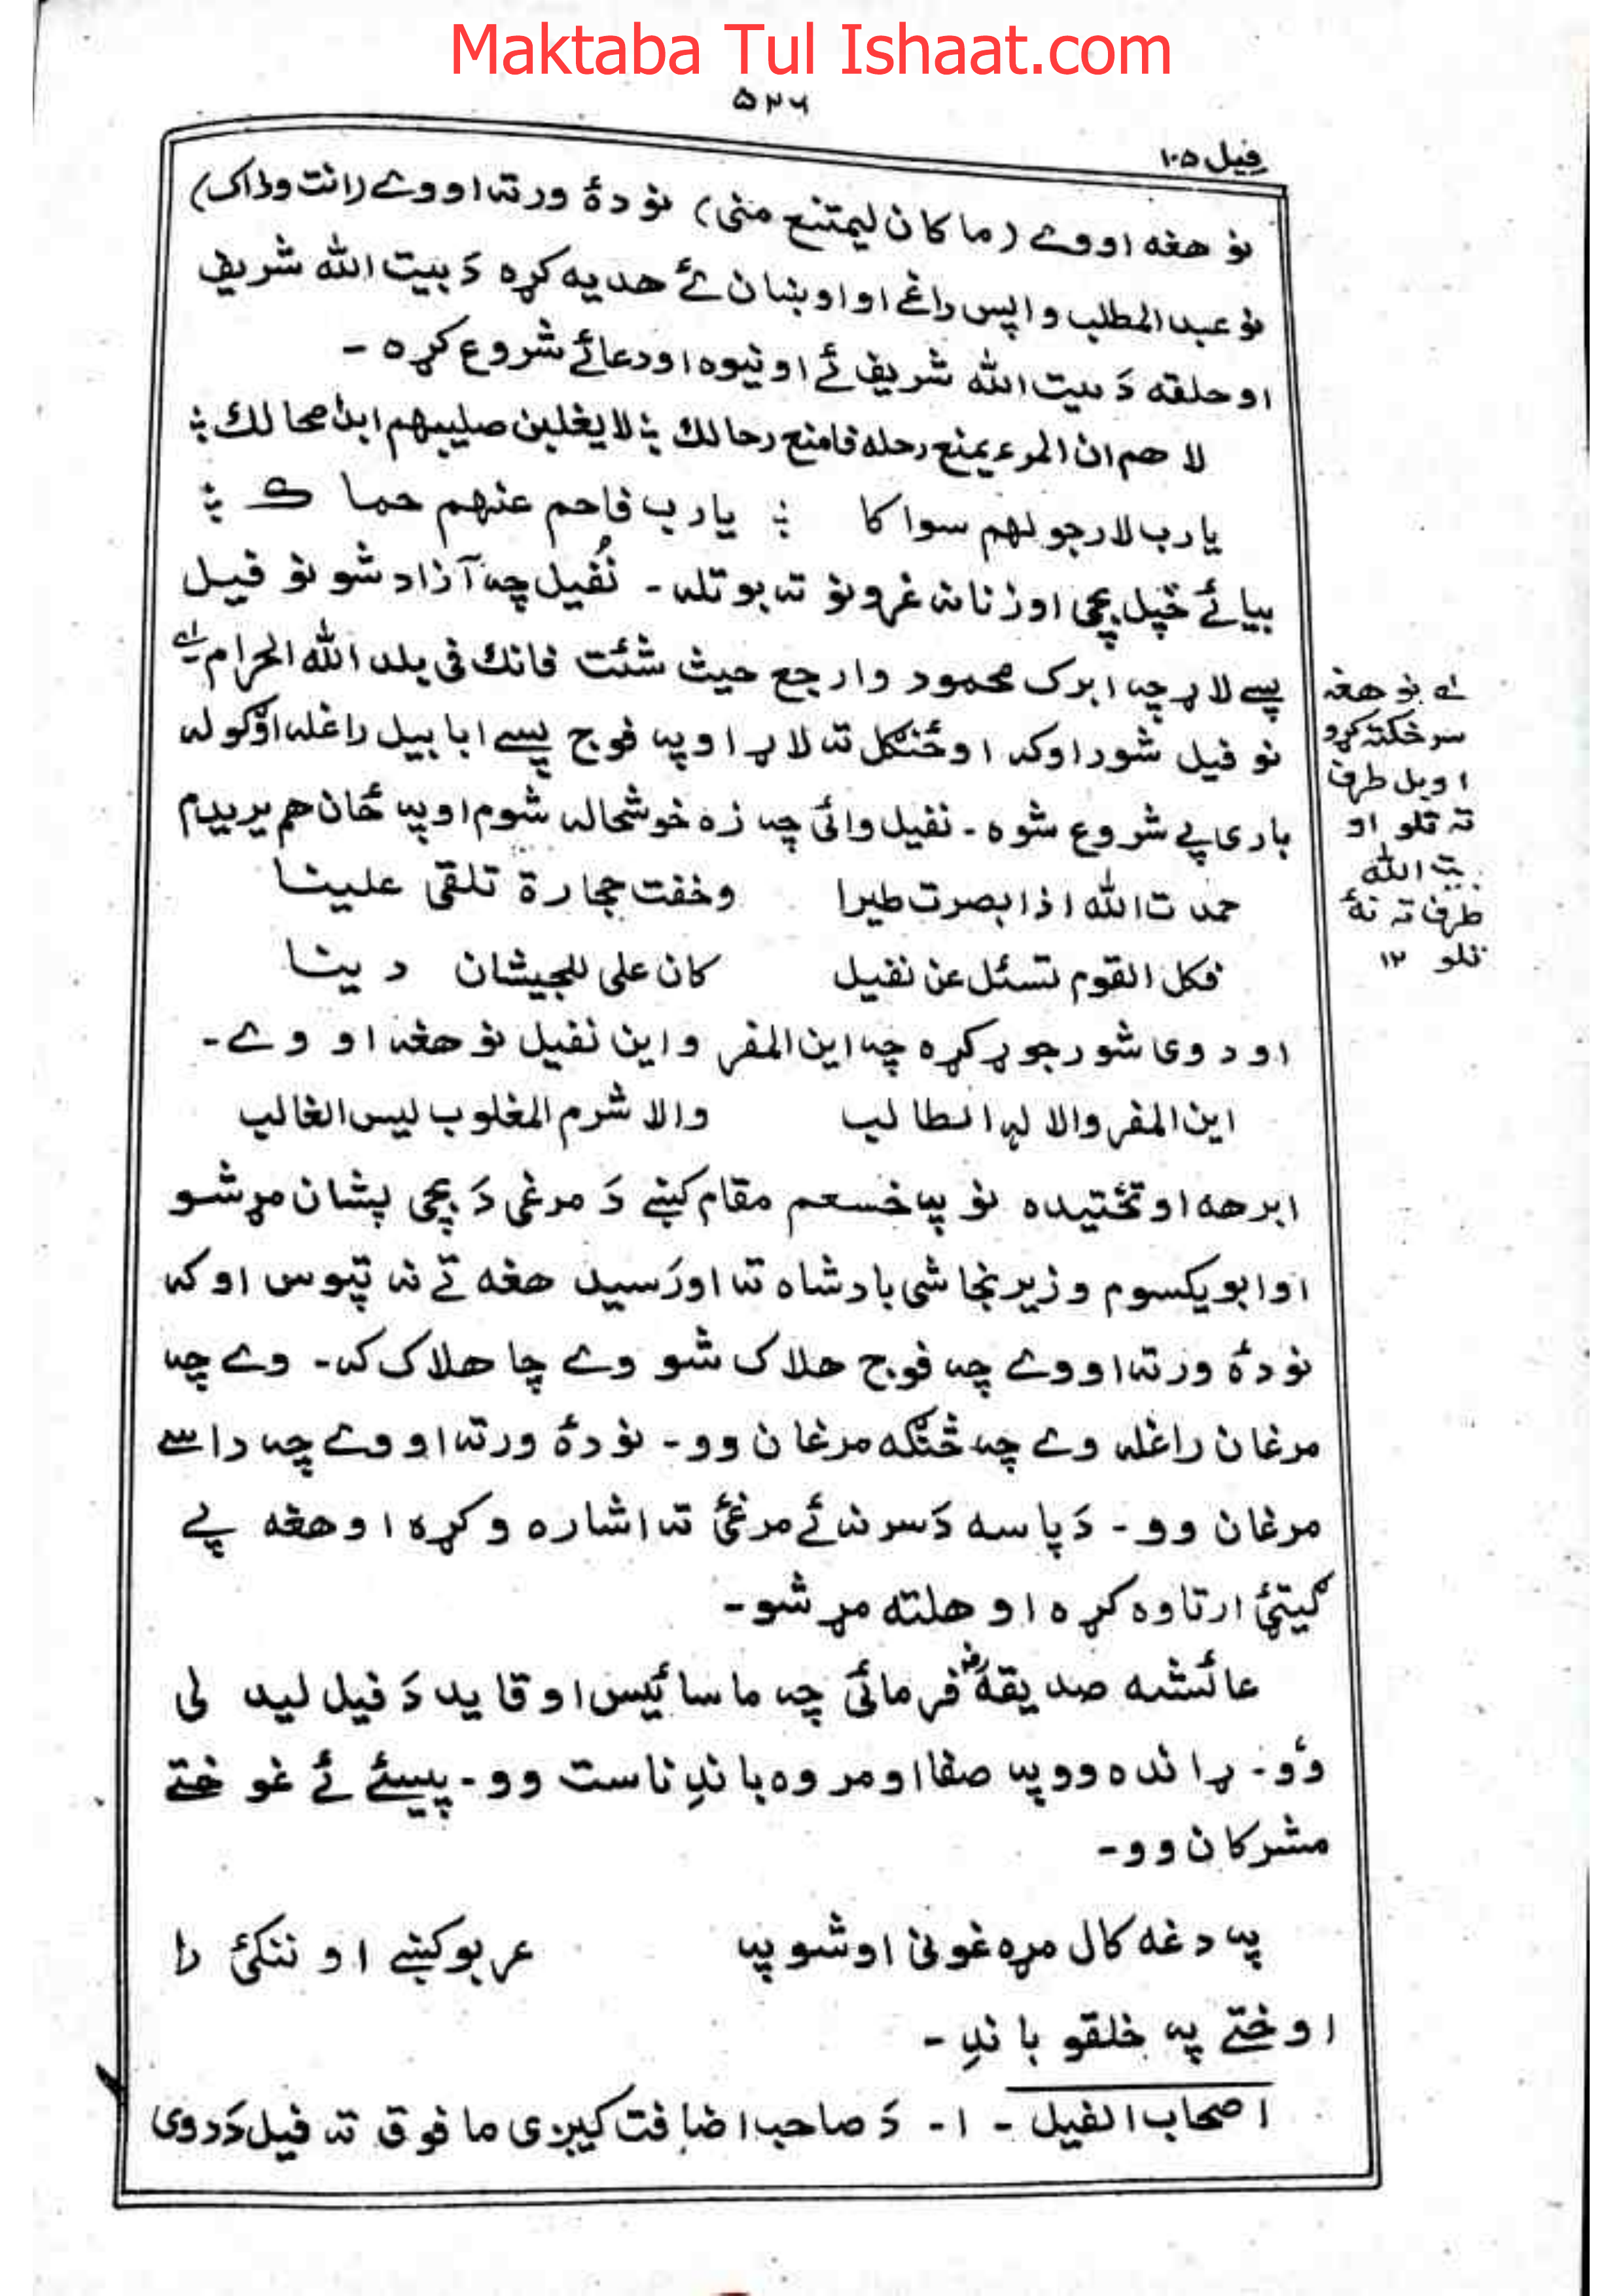 Maktaba Tul Ishaat.com
۵۲۶
فيل ۱۰۵
نو هغه اووے (ما كان ليمتنع منى) نو دۀ ورته اووے (انت وذاك)
نو عبد المطلب واپس راغے او اوښان ئے هديه كړه دَ بيت الله شريف
او حلقه دَ بيت الله شريف ئے اونيوه او دعائے شروع كړه ۔
لا هم ان المرء يمنع رحله فامنع رحالك ؛ لا يغلبن صليبهم ابدا محالك ؛
يا رب لا رجو لهم سواكا ؛ يا رب فاحم عنهم حماك ؛
بيائے خپل بچى او زنانه غرونو ته بوتله ۔ نُفيل چه آزاد شو نو فيل
پسے لاړ چه ابرك محمود وارجع حيث شئت فانك فى بلد الله الحرام لے
نو فيل شور اوكه او ځنګل ته لاړ او په فوج پسے ابابيل راغله اؤ ګوله
بارى پے شروع شوه ۔ نفيل وائى چه زه خوشحاله شوم او په ځان هم يريدم
حمدت الله اذ ابصرت طيرا وخفت حجارة تلقى علينا
فكل القوم تسئل عن نفيل كان على للجيشان دينا
او دوى شور جوړ كړه چه اين المفر واين نفيل نو هغه او وے ۔
اين المفر والا له الطالب والا شرم المغلوب ليس الغالب
ابرهه او تختيده نو په خسعم مقام كښے دَ مرغى دَ بچى پشان مړ شو
او ابويكسوم وزير نجاشى بادشاه ته اورَسيد هغه تے نه تپوس اوكه
نو دۀ ورته اووے چه فوج هلاك شو وے چا هلاك كه ۔ وے چه
مرغان راغله وے چه څنګه مرغان وو ۔ نو دۀ ورته اووے چه داسے
مرغان وو ۔ دَ پاسه دَ سر نه ئے مرغئ ته اشاره وكړه او هغه پے
ګيټئ ارتاوه كړه او هلته مړ شو ۔
عائشه صديقهؓ فرمائى چه ما سائيس او قايد دَ فيل ليد لى
وؤ ۔ ړانده وو په صفا او مروه باندِ ناست وو ۔ پيسئے ئے غوختے
مشركان وو ۔
په دغه كال مړه غونى اوشو په عربو كښے او ننكئ را
اوختے په خلقو باندِ ۔
اصحاب الفيل ۔ ۱ ۔ دَ صاحب اضافت كيږى ما فوق ته فيل دَ دوى
لے نو هغه
سر ښكته كړو
او بل طرف
ته تلو او
بيت الله
طرف ته نۀ
تلو ۱۲